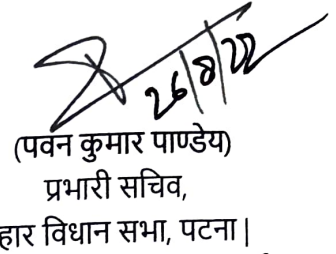 26/8/22
(पवन कुमार पाण्डेय)
प्रभारी सचिव,
हार विधान सभा, पटना|